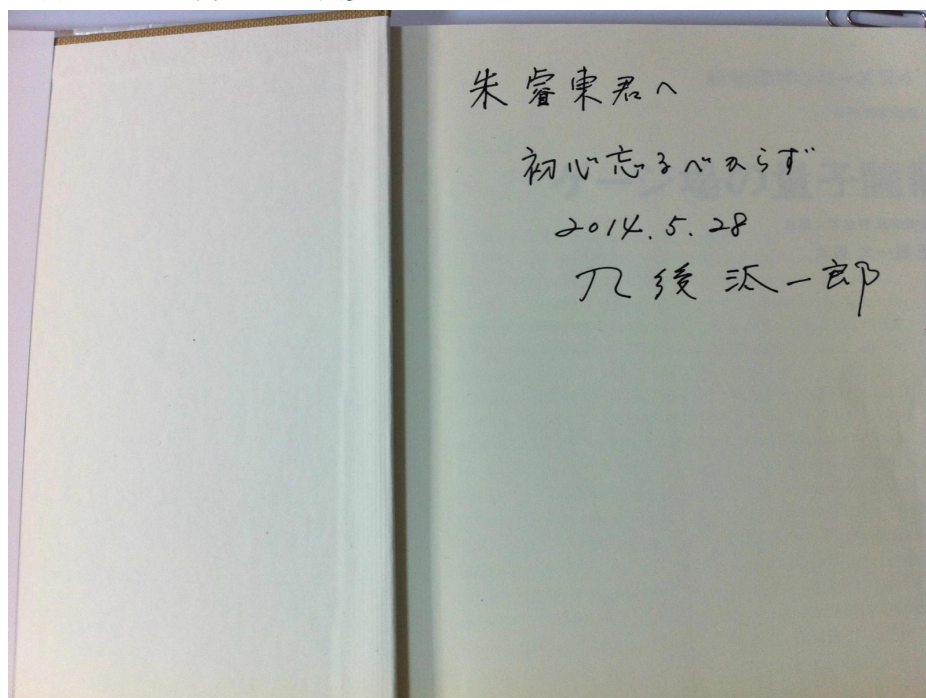 朱睿東君へ
初心忘るべからず
2014.5.28
九後汰一郎